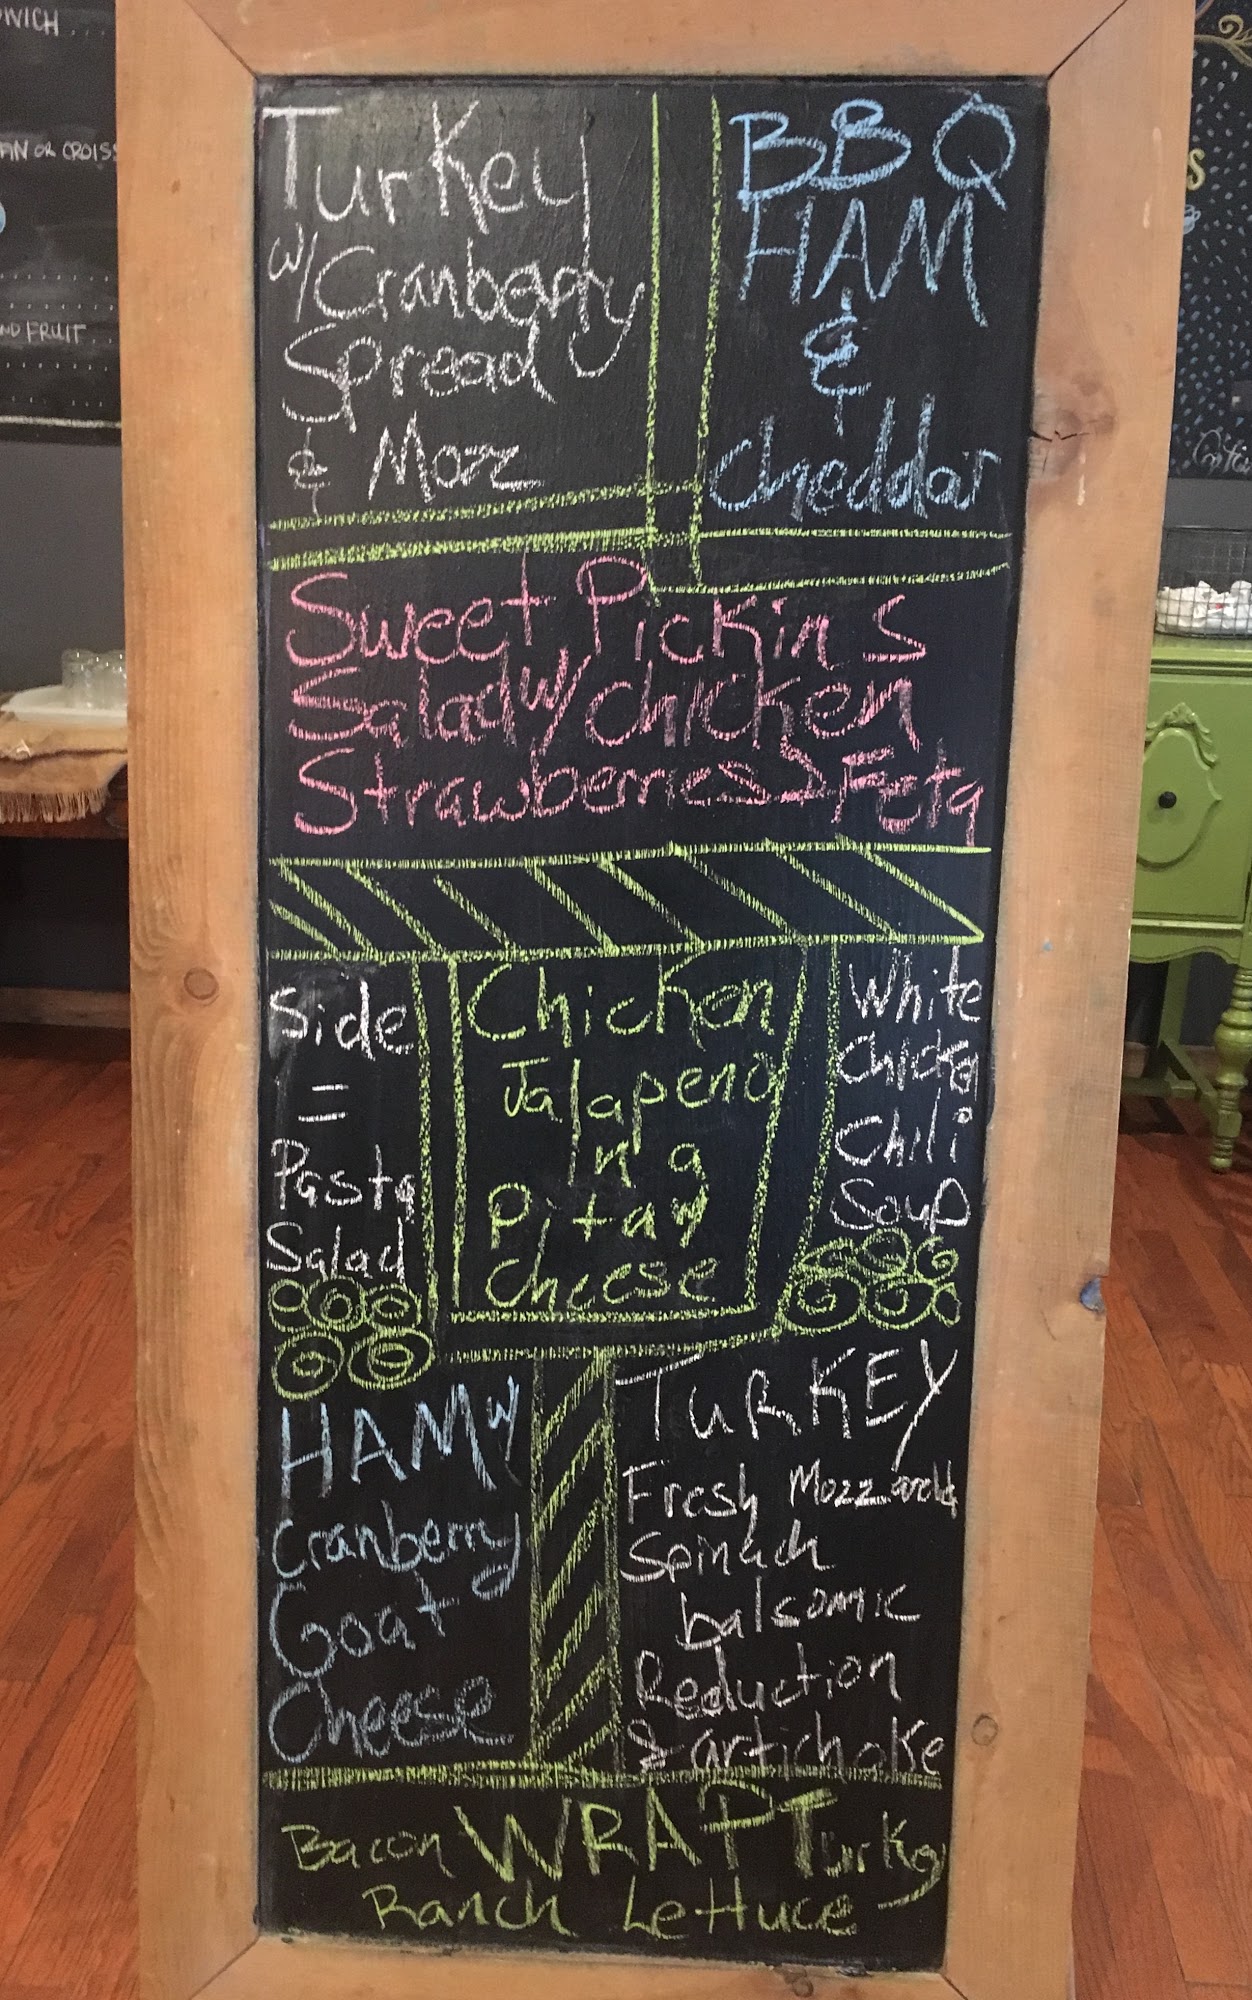 WICH ...
AN OR CROISS
ND FRUIT ..
Turkey
w/Cranberry
Spread
& Mozz
BBQ
HAM
&
Cheddar
Sweet Pickins
Salad w/ chicken
Strawberries & Feta
Side
=
Pasta
Salad
Chicken
Jalapeno
In a
Pita w/
Cheese
White
Chicken
Chili
Soup
HAM w/
Cranberry
Goat
Cheese
TURKEY
Fresh Mozzarella
Spinach
balsomic
Reduction
& artichoke
Bacon WRAPT Turkey
Ranch Lettuce